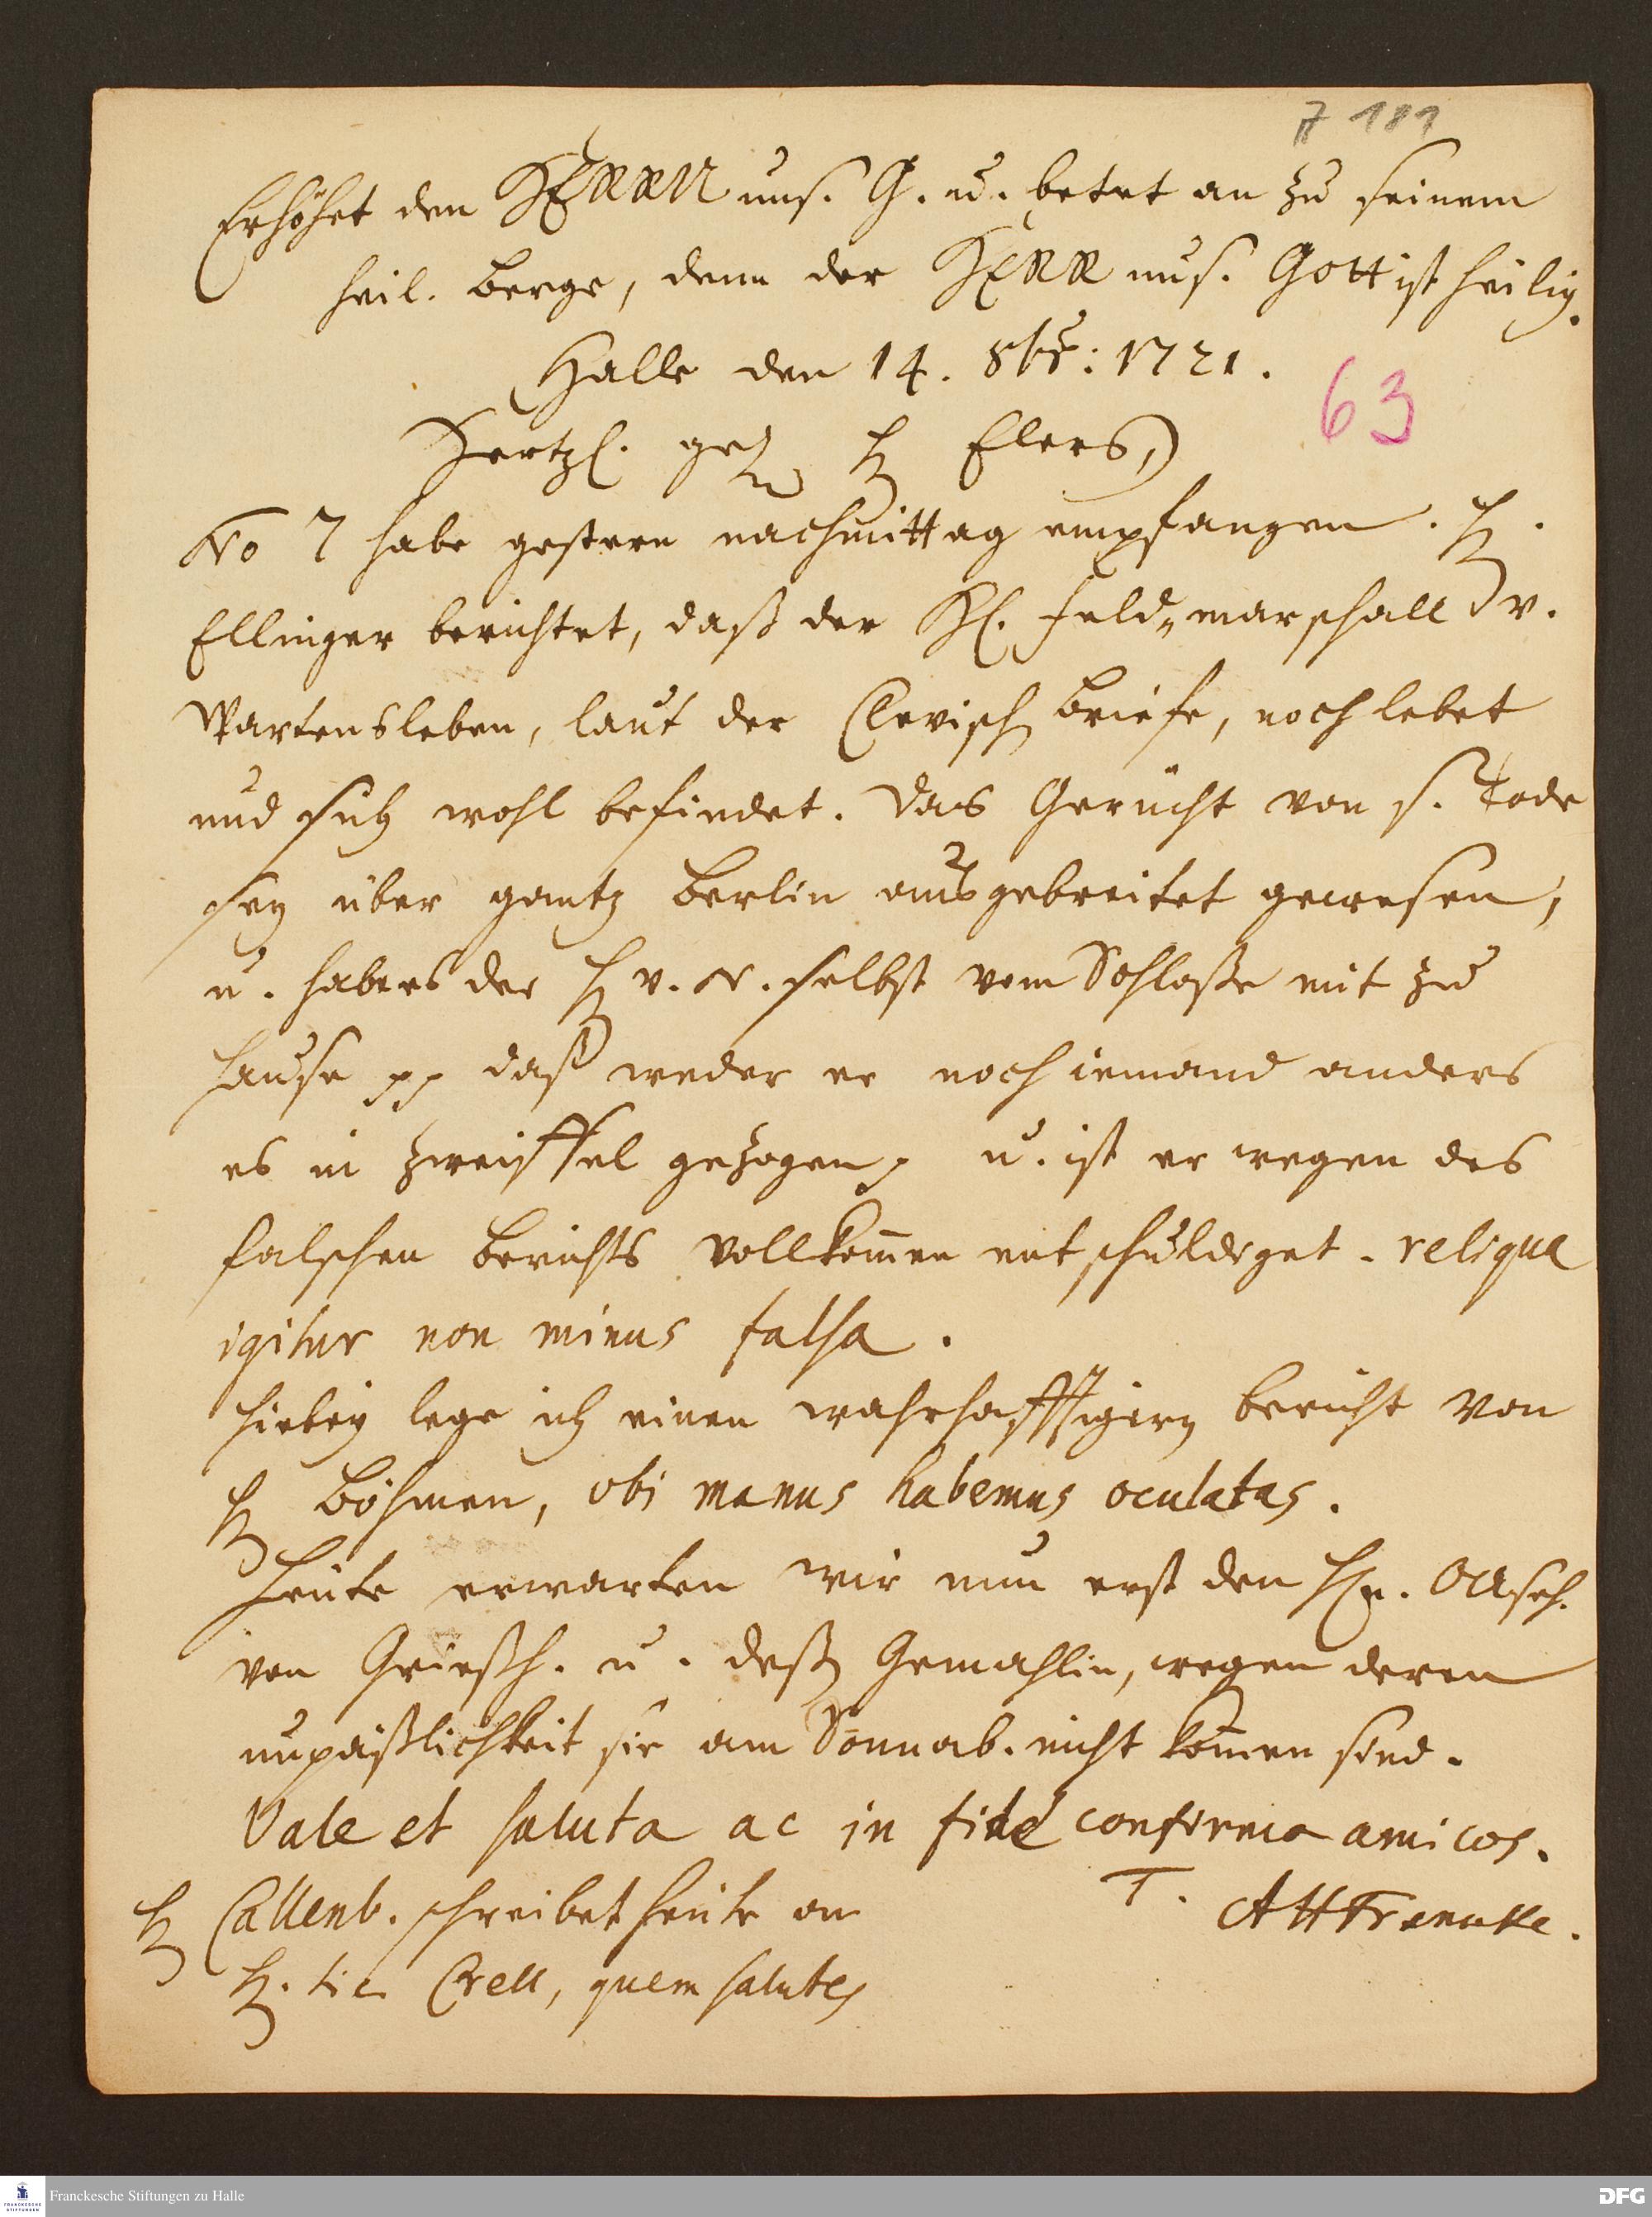 7 181
Erhöhet den HERRN uns. G. u. betet an zu seinem
heil. Berge, denn der HERR uns. Gott ist heilig.
Halle den 14. 8br: 1721.
Hertzl. gel. H Elers,
No 7 habe gestern nachmittag empfangen. H.
Ellinger berichtet, daß der H. Feld-marschall v.
Wartensleben, laut der Clevisch Briefe, noch lebet
und sich wohl befindet. Das Gerücht von s. Tode
sey über gantz Berlin ausgebreitet gewesen,
u. habe es der H v. N. selbst vom Schloße mit zu
Hause pp daß weder er noch iemand anders
es in zweiffel gezogen, u. ist er wegen des
falschen Berichts vollkomen entschuldiget. reliqua
igitur non minus falsa.
Hiebey lege ich einen wahrhafftigern Bericht von
H Böhmen, obi manus habemus oculatas.
Heute erwarten wir nun erst den Hn.
von Griesh. u. deßen Gemahlin, wegen deren
unpäßlichkeit sie am Sonnab. nicht komen sind.
Vale et saluta ac in fide confirma amicos.
T. AHFrancke.
H Callenb. schreibet heute an
H. Lic. Crell, quem salutes
63
Franckesche Stiftungen zu Halle
FRANCKESCHE STIFTUNGEN
DFG